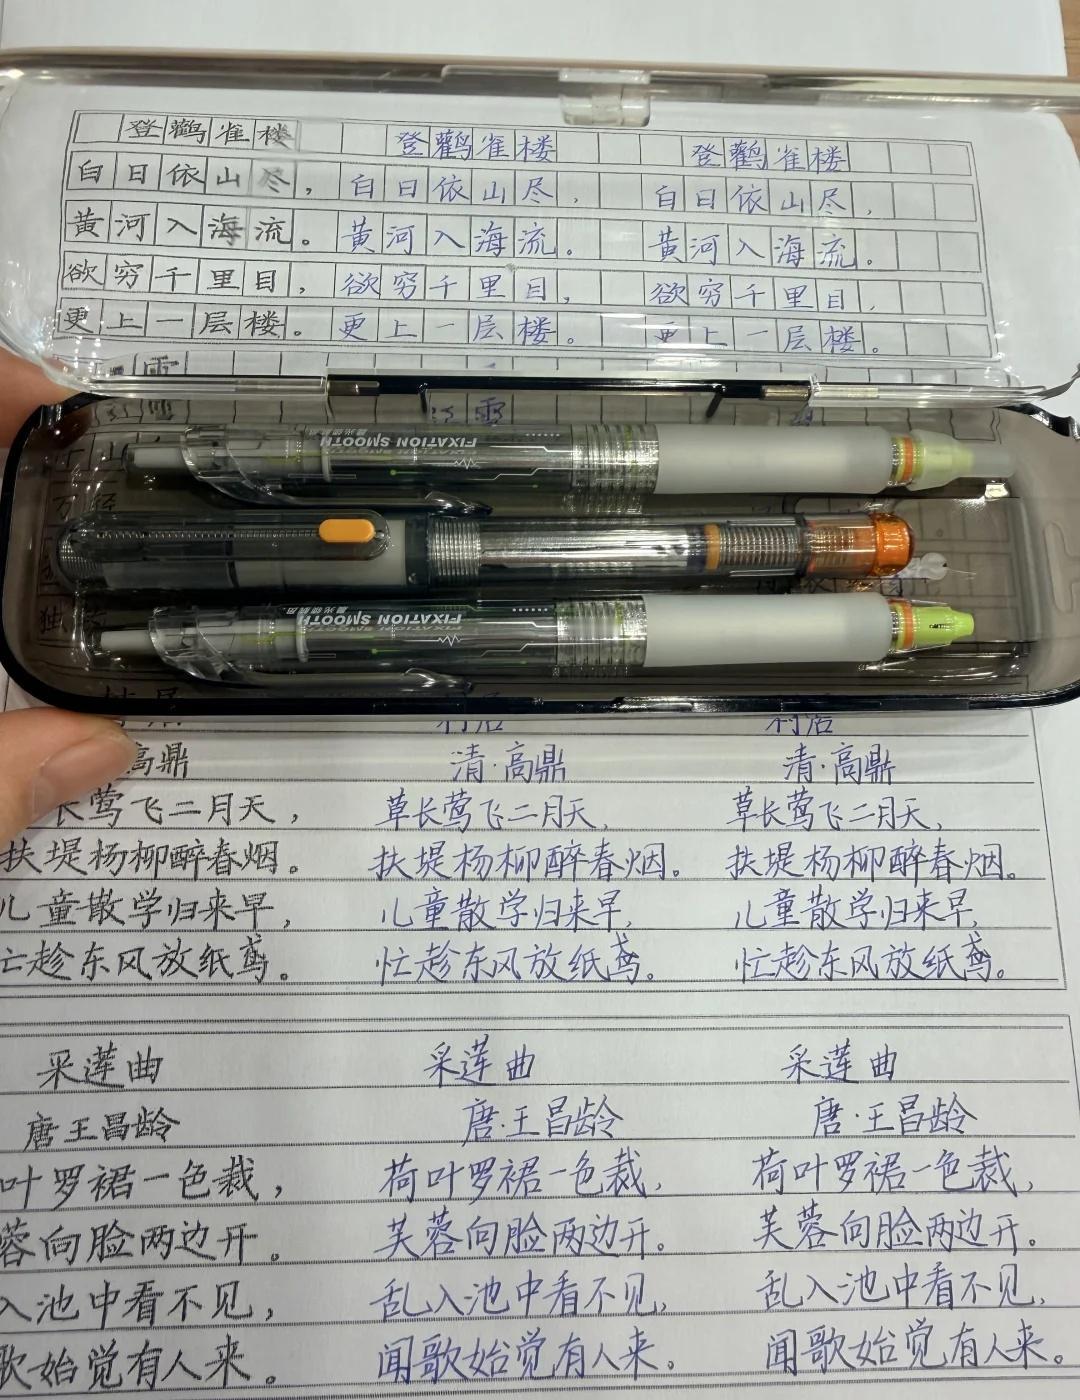 登鹳雀楼 登鹳雀楼 登鹳雀楼
白日依山尽， 白日依山尽， 白日依山尽，
黄河入海流。 黄河入海流。 黄河入海流。
欲穷千里目， 欲穷千里目， 欲穷千里目，
更上一层楼。 更上一层楼。 更上一层楼。
雪
江雪
千山
万径
FIXATION SMOOTH
晨光修正
FIXATION SMOOTH
独
村居 村居 村居
高鼎 清·高鼎 清·高鼎
长莺飞二月天， 草长莺飞二月天， 草长莺飞二月天，
扶堤杨柳醉春烟。 扶堤杨柳醉春烟。 扶堤杨柳醉春烟。
儿童散学归来早， 儿童散学归来早， 儿童散学归来早，
忙趁东风放纸鸢。 忙趁东风放纸鸢。 忙趁东风放纸鸢。
采莲曲 采莲曲 采莲曲
唐王昌龄 唐·王昌龄 唐·王昌龄
叶罗裙一色裁， 荷叶罗裙一色裁， 荷叶罗裙一色裁，
蓉向脸两边开。 芙蓉向脸两边开。 芙蓉向脸两边开。
入池中看不见， 乱入池中看不见， 乱入池中看不见，
歌始觉有人来。 闻歌始觉有人来。 闻歌始觉有人来。